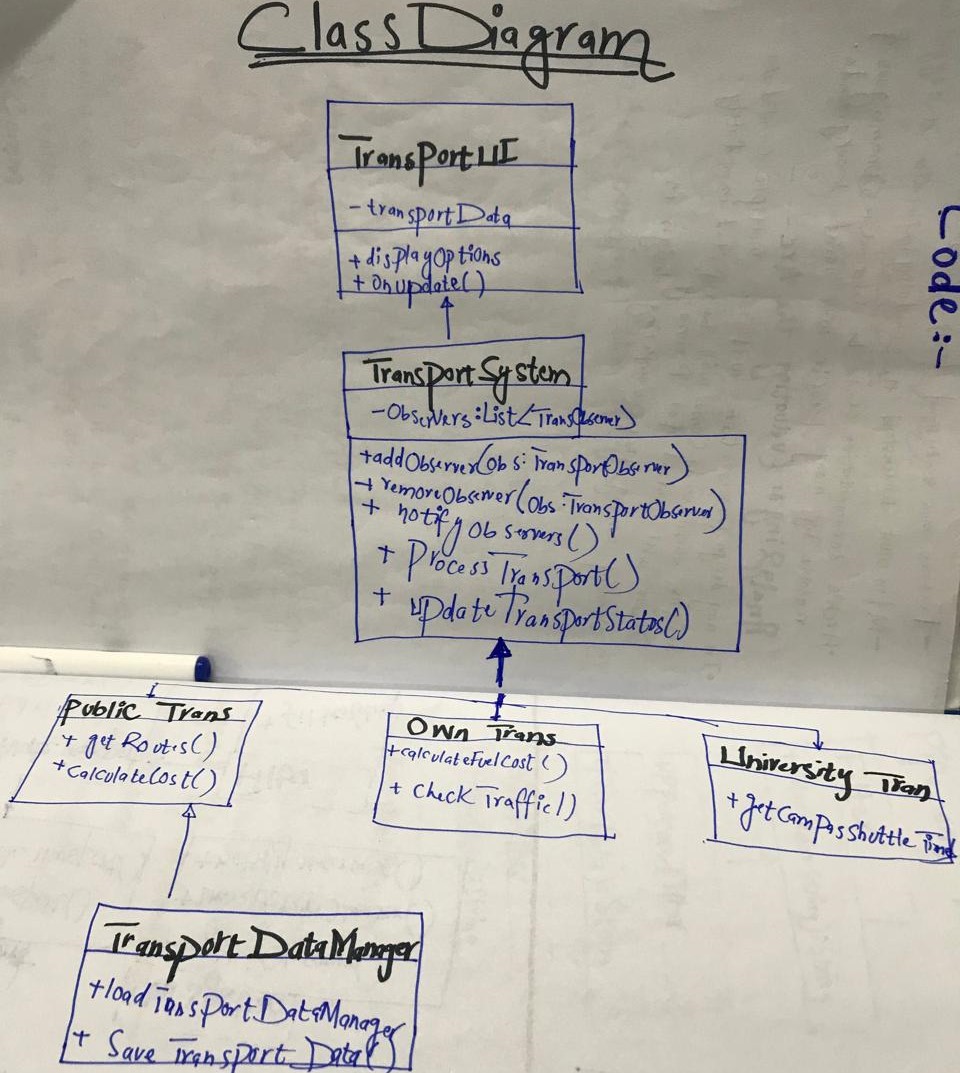 Class Diagram
Transport UI
- transport Data
+ displayOptions
+ onupdate()
Code:-
Transport System
- Observers: List<TransObserver>
+ addObserver(obs: TransportObserver)
+ removeObserver(obs: TransportObserver)
+ notifyObservers()
+ Process Transport()
+ updateTransportStatus()
Public Trans
+ getRoutes()
+ CalculateCost()
Own Trans
+ calculateFuelCost()
+ Check Traffic()
University Tran
+ getCampasShuttle Time
Transport DataManager
+ load Tansport DataManager
+ Save Transport Data()